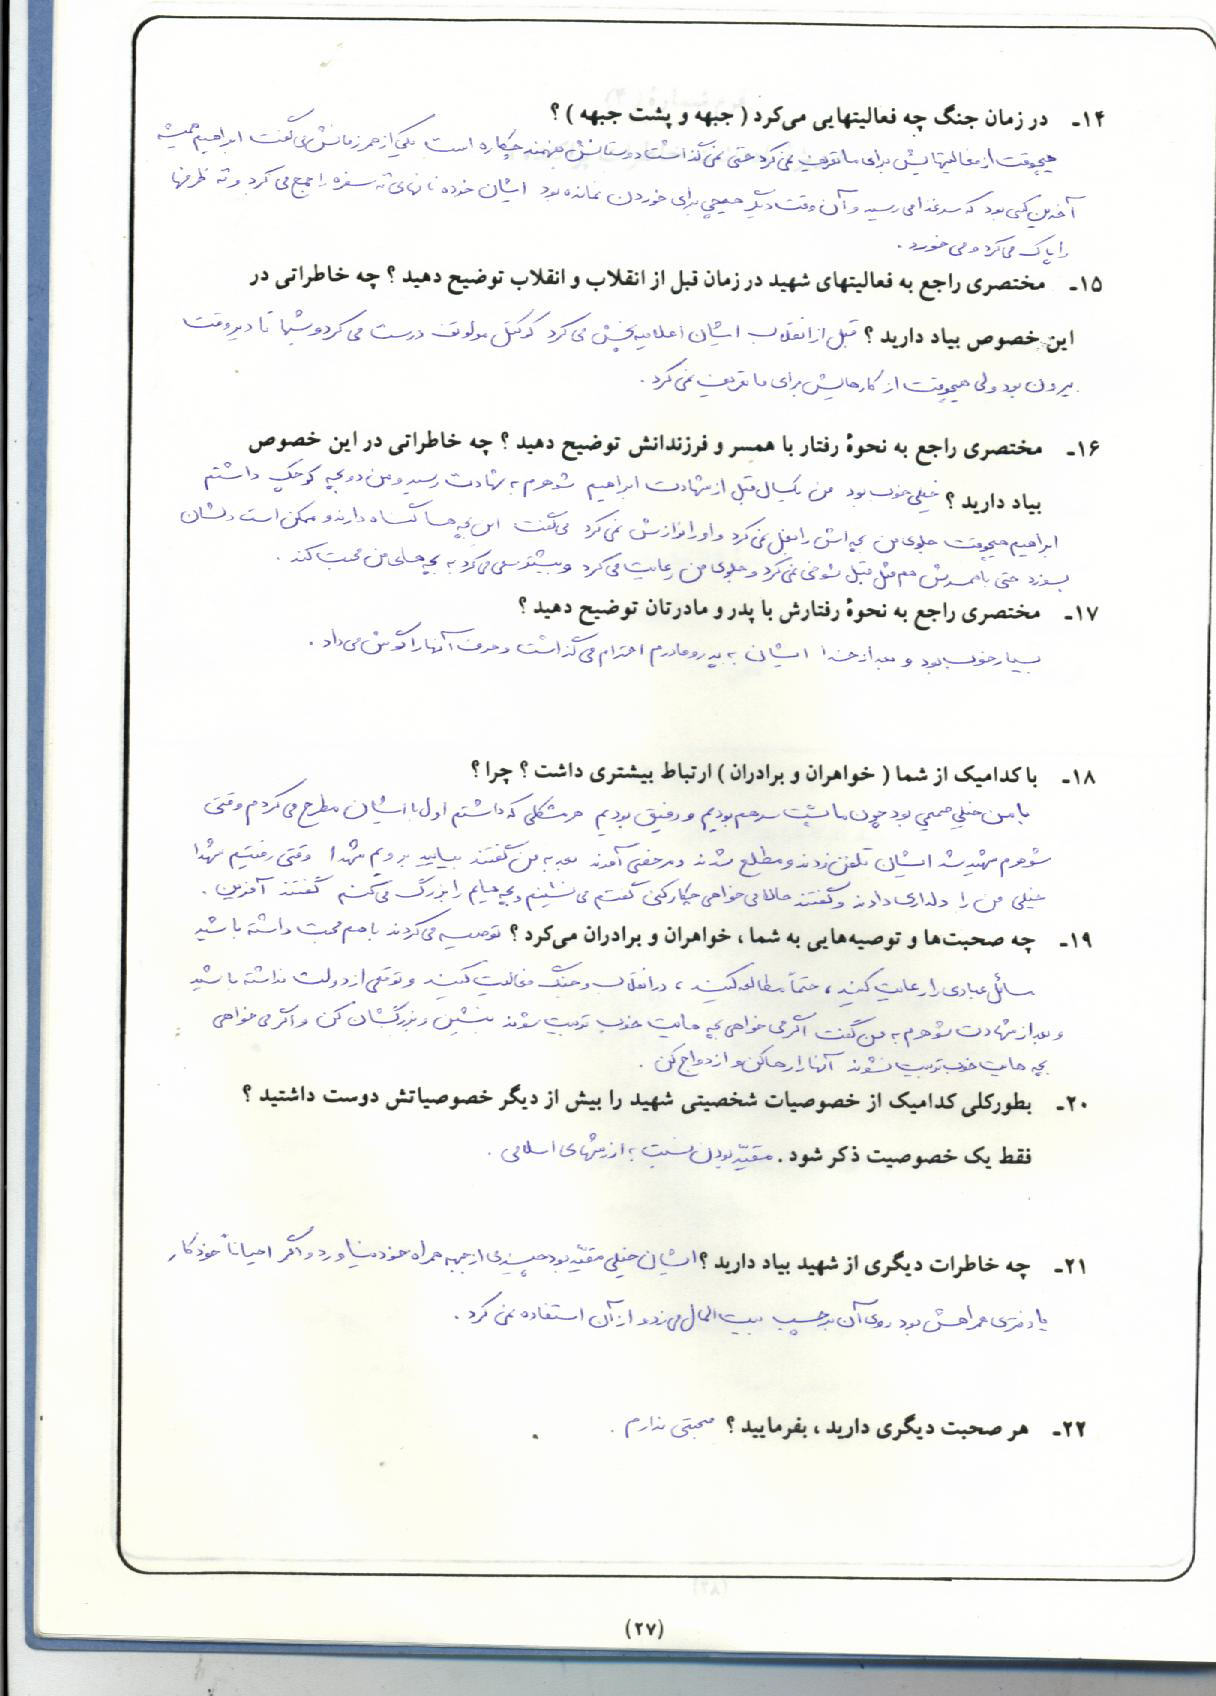 ۱۴ـ در زمان جنگ چه فعالیتهایی می‌کرد ( جبهه و پشت جبهه ) ؟
هیچوقت از فعالیتهایش برای ما تعریف نمی کرد حتی نمی گذاشت دوستانش بفهمند چکاره است یکی از همرزمانش می گفت ابراهیم همیشه
آخرین کسی بود که سر غذا می رسید و آن وقت دیگر چیزی برای خوردن نمانده بود ایشان خورده نانهای ته سفره را جمع می کرد و ته ظرفها
را پاک می کرد و می خورد .
۱۵ـ مختصری راجع به فعالیتهای شهید در زمان قبل از انقلاب و انقلاب توضیح دهید ؟ چه خاطراتی در
این خصوص بیاد دارید ؟ قبل از انقلاب ایشان اعلامیه پخش می کرد کوکتل مولوتف درست می کرد و شبها تا دیروقت
بیرون بود ولی هیچوقت از کارهایش برای ما تعریف نمی کرد .
۱۶ـ مختصری راجع به نحوهٔ رفتار با همسر و فرزندانش توضیح دهید ؟ چه خاطراتی در این خصوص
بیاد دارید ؟ خیلی خوب بود من یکسال قبل از شهادت ابراهیم شوهرم به شهادت رسید و من دو بچه کوچک داشتم
ابراهیم هیچوقت جلوی من بچه اش را بغل نمی کرد و او را نوازش نمی کرد می گفت این بچه ها گناه دارند و ممکن است دلشان
بسوزد حتی با همسرش هم مثل قبل شوخی نمی کرد و جلوی من رعایت می کرد و بیشتر سعی می کرد به بچه های من محبت کند .
۱۷ـ مختصری راجع به نحوهٔ رفتارش با پدر و مادرتان توضیح دهید ؟
بسیار خوب بود و بعد از خدا ایشان به پدر و مادرم احترام می گذاشت و حرف آنها را گوش می داد .
۱۸ـ با کدامیک از شما ( خواهران و برادران ) ارتباط بیشتری داشت ؟ چرا ؟
با من خیلی صمیمی بود چون ما پشت سر هم بودیم و رفیق بودیم هر مشکلی که داشتم اول با ایشان مطرح می کردم وقتی
شوهرم شهید شد ایشان تلفن زدند و مطلع شدند و مرخصی آمدند بعد به من گفتند بیایید برویم شهدا وقتی رفتیم شهدا
خیلی من را دلداری دادند و گفتند حالا می خواهی چکار کنی گفتم می نشینم و بچه هایم را بزرگ می کنم گفتند آفرین .
۱۹ـ چه صحبت‌ها و توصیه‌هایی به شما ، خواهران و برادران می‌کرد ؟ توصیه می کردند با هم محبت داشته باشید
مسائل عبادی را رعایت کنید ، حتماً مطالعه کنید ، در انقلاب و جنگ فعالیت کنید و توقعی از دولت نداشته باشید
و بعد از شهادت شوهرم به من گفت اگر می خواهی بچه هایت خوب تربیت شوند بنشین و بزرگشان کن و اگر می خواهی
بچه هایت خوب تربیت نشوند آنها را رها کن و ازدواج کن .
۲۰ـ بطورکلی کدامیک از خصوصیات شخصیتی شهید را بیش از دیگر خصوصیاتش دوست داشتید ؟
فقط یک خصوصیت ذکر شود . مقیّد بودن نسبت به ارزشهای اسلامی .
۲۱ـ چه خاطرات دیگری از شهید بیاد دارید ؟ ایشان خیلی مقیّد بود چیزی از جبهه همراه خود نیاورد و اگر احیاناً خودکار
یا دفتری همراهش بود روی آن برچسب بیت المال می زد و از آن استفاده نمی کرد .
۲۲ـ هر صحبت دیگری دارید ، بفرمایید ؟ صحبتی ندارم .
(۲۷)